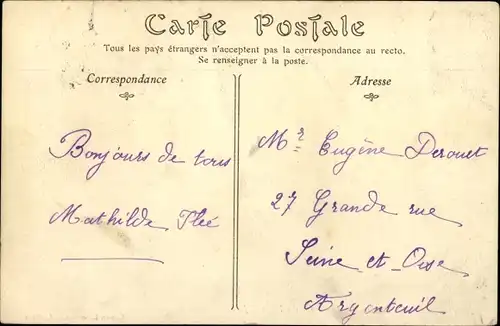 Carte Postale
Tous les pays étrangers n'acceptent pas la correspondance au recto.
Se renseigner à la poste.
Correspondance
Adresse
Bonjours de tous
Mathilde
Mr Eugène Derouet
27 Grande rue
Seine et-Oise
Argenteuil